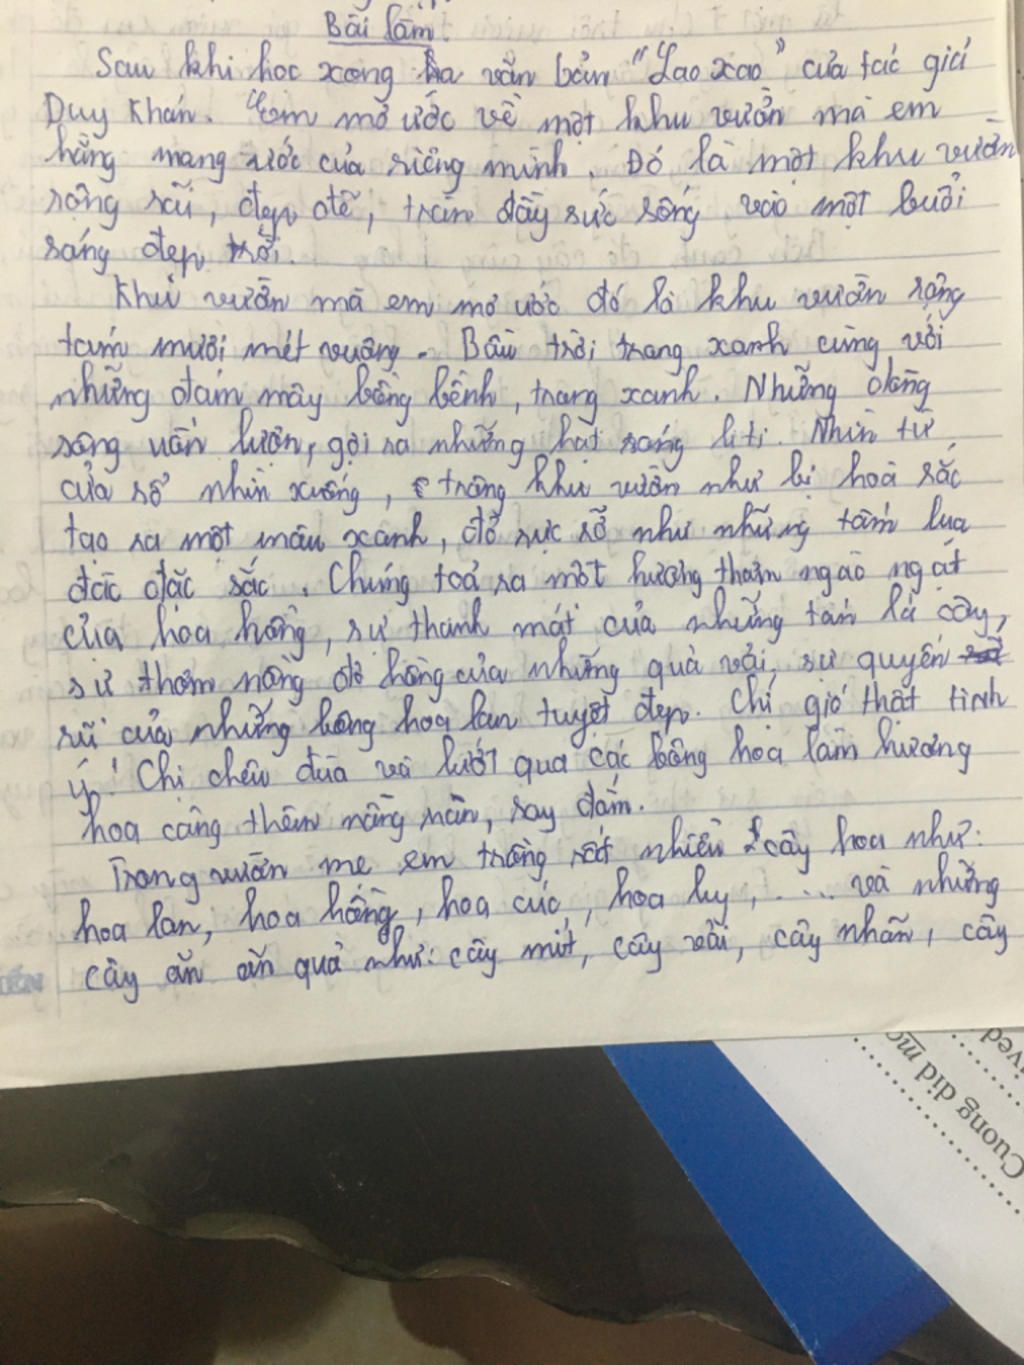 Bài làm.
Sau khi học xong văn bản "Lao xao" của tác giả
Duy Khán. Em mơ ước về một khu vườn mà em
hằng mong ước của riêng mình. Đó là một khu vườn
rộng rãi, đẹp đẽ, tràn đầy sức sống vào một buổi
sáng đẹp trời.
Khu vườn mà em mơ ước đó là khu vườn rộng
tám mươi mét vuông. Bầu trời trong xanh cùng với
những đám mây bồng bềnh, trong xanh. Những dòng
sông uốn lượn, gợi ra những hạt sáng li ti. Nhìn từ
cửa sổ nhìn xuống, trông khu vườn như bị hoà sắc
tạo ra một màu xanh, đỏ rực rỡ như những tấm lụa
đặc sắc. Chúng toả ra một hương thơm ngào ngạt
của hoa hồng, sự thanh mát của những tán lá cây,
sự thơm nồng đỏ hồng của những quả vải, sự quyến
rũ của những bông hoa lan tuyệt đẹp. Chị gió thật tinh
ý! Chị chêu đùa và lướt qua các bông hoa làm hương
hoa càng thêm nồng nàn, say đắm.
Trong vườn mẹ em trồng rất nhiều cây hoa như:
hoa lan, hoa hồng, hoa cúc, hoa ly, .... và những
cây ăn ăn quả như: cây mít, cây vải, cây nhãn, cây
Cuong did mo
ived